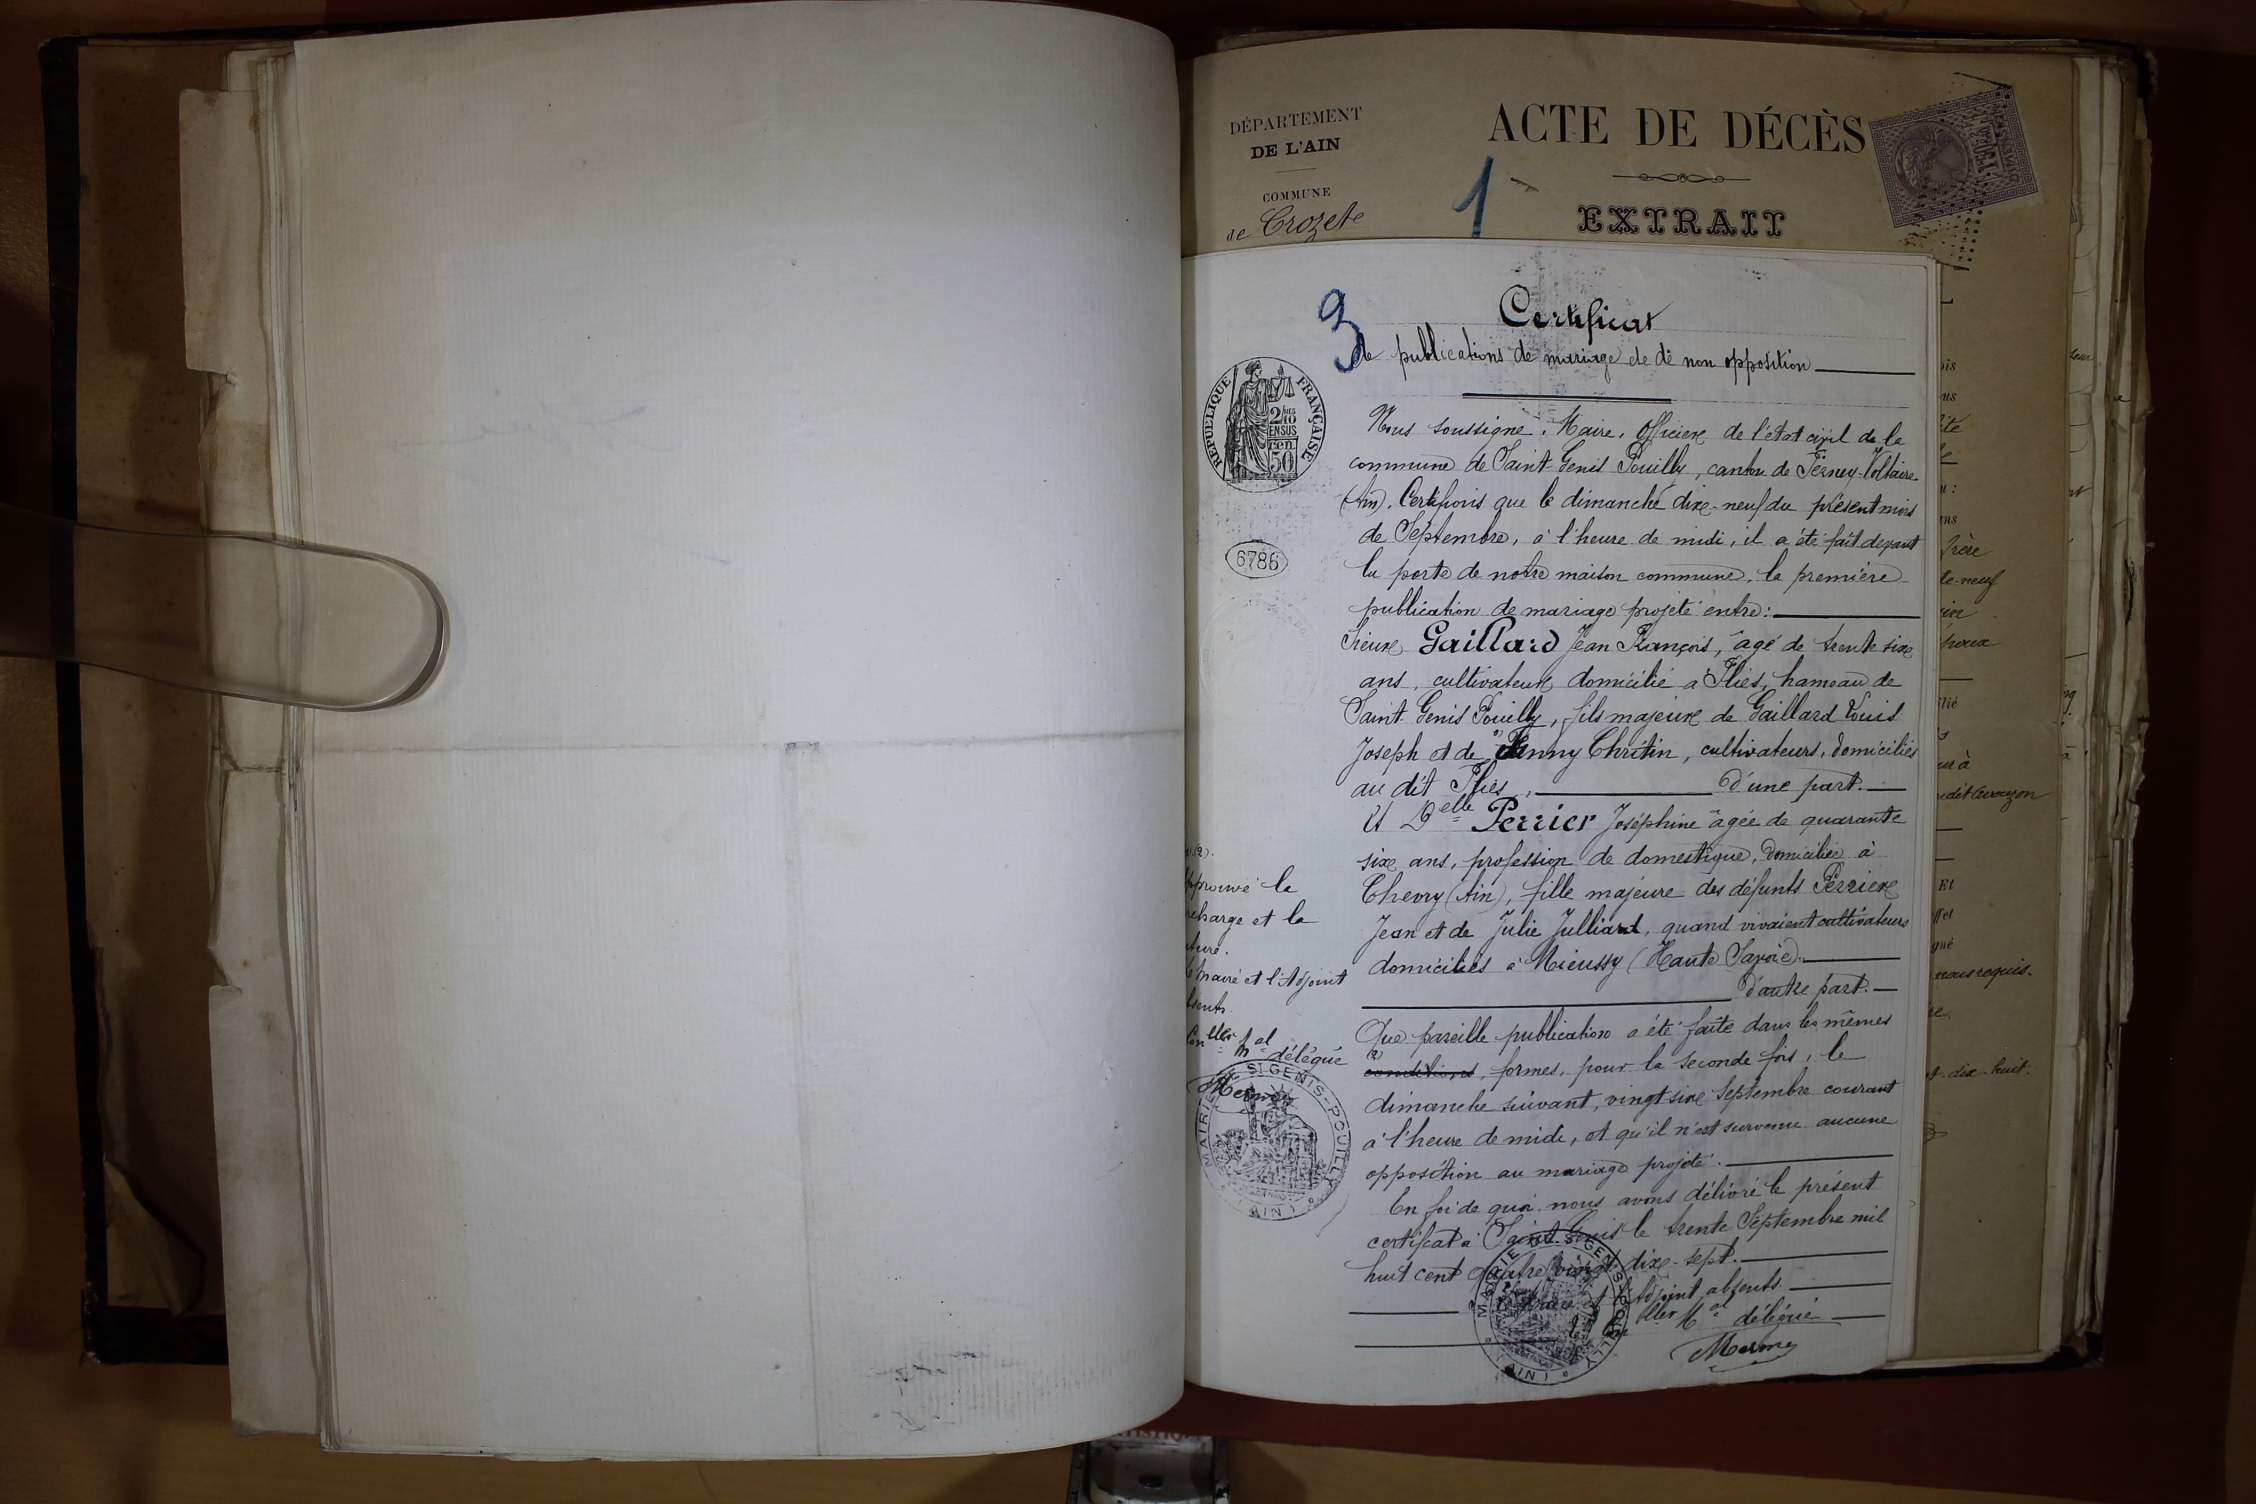 DÉPARTEMENT
DE L'AIN
COMMUNE
de Crozet
ACTE DE DÉCÈS
1
EXTRAIT
3
Certificat
de publications de mariage et de non opposition
REPUBLIQUE FRANÇAISE
2/10
EN SUS
50
6786
Nous soussigné, Maire, Officier de l'état civil de la
commune de Saint Genis Pouilly, canton de Ferney-Voltaire
(Ain). Certifions que le dimanche dix-neuf du présent mois
de Septembre, à l'heure de midi, il a été fait devant
la porte de notre maison commune, la première
publication de mariage projeté entre:
Sieur Gaillard Jean François, âgé de trente six
ans, cultivateur domicilié a Flies, hameau de
Saint Genis Pouilly, fils majeur de Gaillard Louis
Joseph et de Fanny Chrétin, cultivateurs, domiciliés
au dit Flies, d'une part.
Et Delle Perrier Joséphine âgée de quarante
six ans, profession de domestique, domiciliée à
Chevry (Ain), fille majeure des défunts Perrier
Jean et de Julie Julliard, quand vivaient cultivateurs
domiciliés à Mieussy (Haute Savoie).
d'autre part.
Que pareille publication a été faite dans les mêmes
(2)
conditions, formes, pour la seconde fois, le
dimanche suivant, vingt six Septembre courant
à l'heure de midi, et qu'il n'est survenu aucune
opposition au mariage projeté.
En foi de quoi nous avons délivré le présent
certificat à Saint Genis le trente Septembre mil
huit cent quatre vingt dix-sept.
Le Maire et l'Adjoint absents
Le Conller Mal délégué
Mermey
MAIRIE DE ST GENIS-POUILLY
(AIN)
(2).
le
charge et la
Maire et l'Adjoint
Conller Mal délégué
MAIRIE DE ST GENIS-POUILLY
(AIN)
frère
te-neuf
nous requis.
dix-huit.